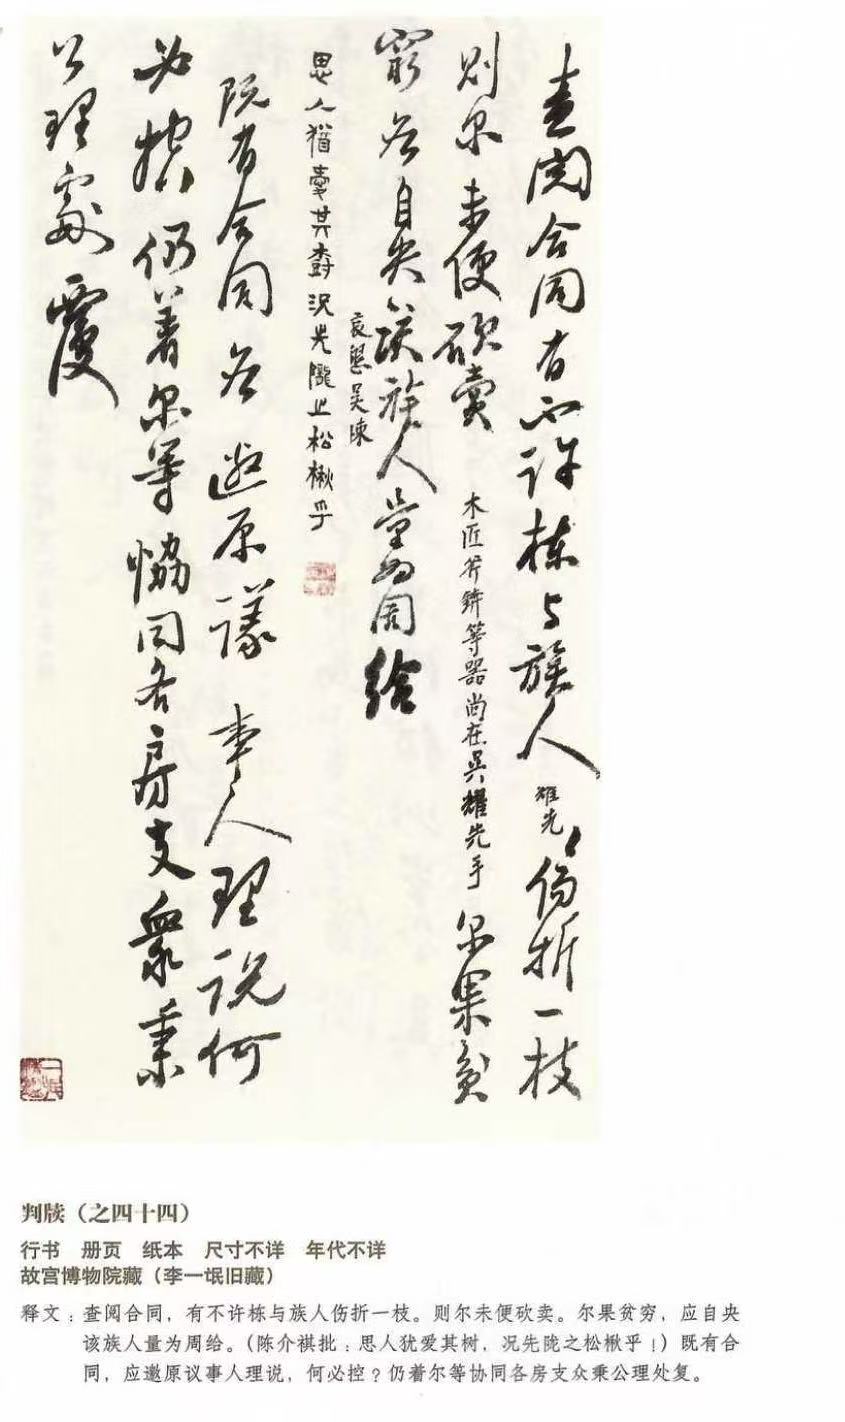 查閱合同有不許棟与族人耀先傷折一枝
則尔未便砍賣木匠斧锛等器尚在吳耀先手尔果貧
窮应自央该族人量为周给
哀懇吴棟
思人猶愛其樹况先隴之松楸乎
既有合同应邀原議事人理说何
必控仍着尔等恊同各房支衆秉
公理處覆
判牍（之四十四）
行书 册页 纸本 尺寸不详 年代不详
故宫博物院藏（李一氓旧藏）
释文：查阅合同，有不许栋与族人伤折一枝。则尔未便砍卖。尔果贫穷，应自央
该族人量为周给。（陈介祺批：思人犹爱其树，况先陇之松楸乎！）既有合
同，应邀原议事人理说，何必控？仍着尔等协同各房支众秉公理处复。